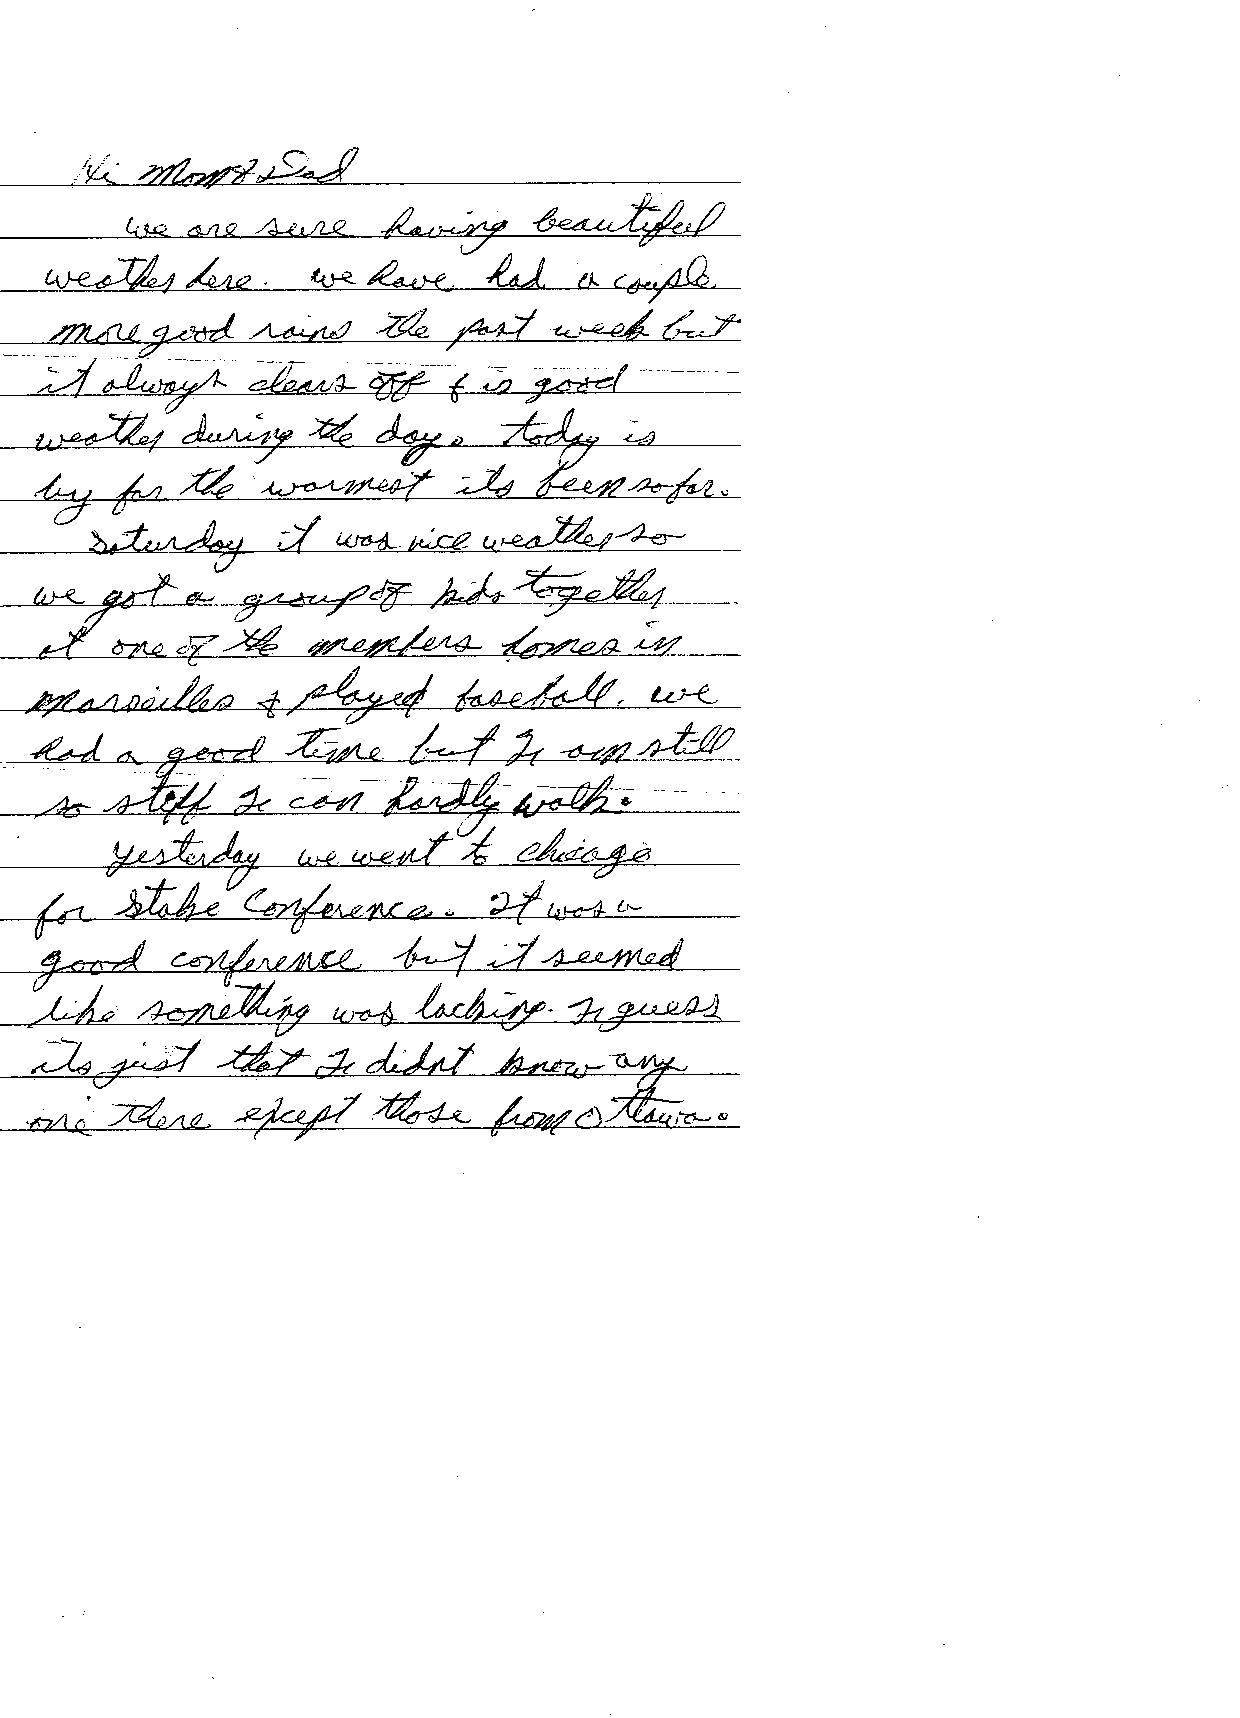 Hi Mom & Dad
we are sure having beautiful
weather here. we have had a couple
more good rains the past week but
it always clears off & is good
weather during the day. today is
by far the warmest its been so far.
Saturday it was nice weather so
we got a group of kids together
at one of the members homes in
Marseilles & played baseball. we
had a good time but I am still
so stiff I can hardly walk.
Yesterday we went to chicago
for Stake Conference. It was a
good conference but it seemed
like something was lacking. I guess
its just that I didnt know any
one there except those from Ottawa.